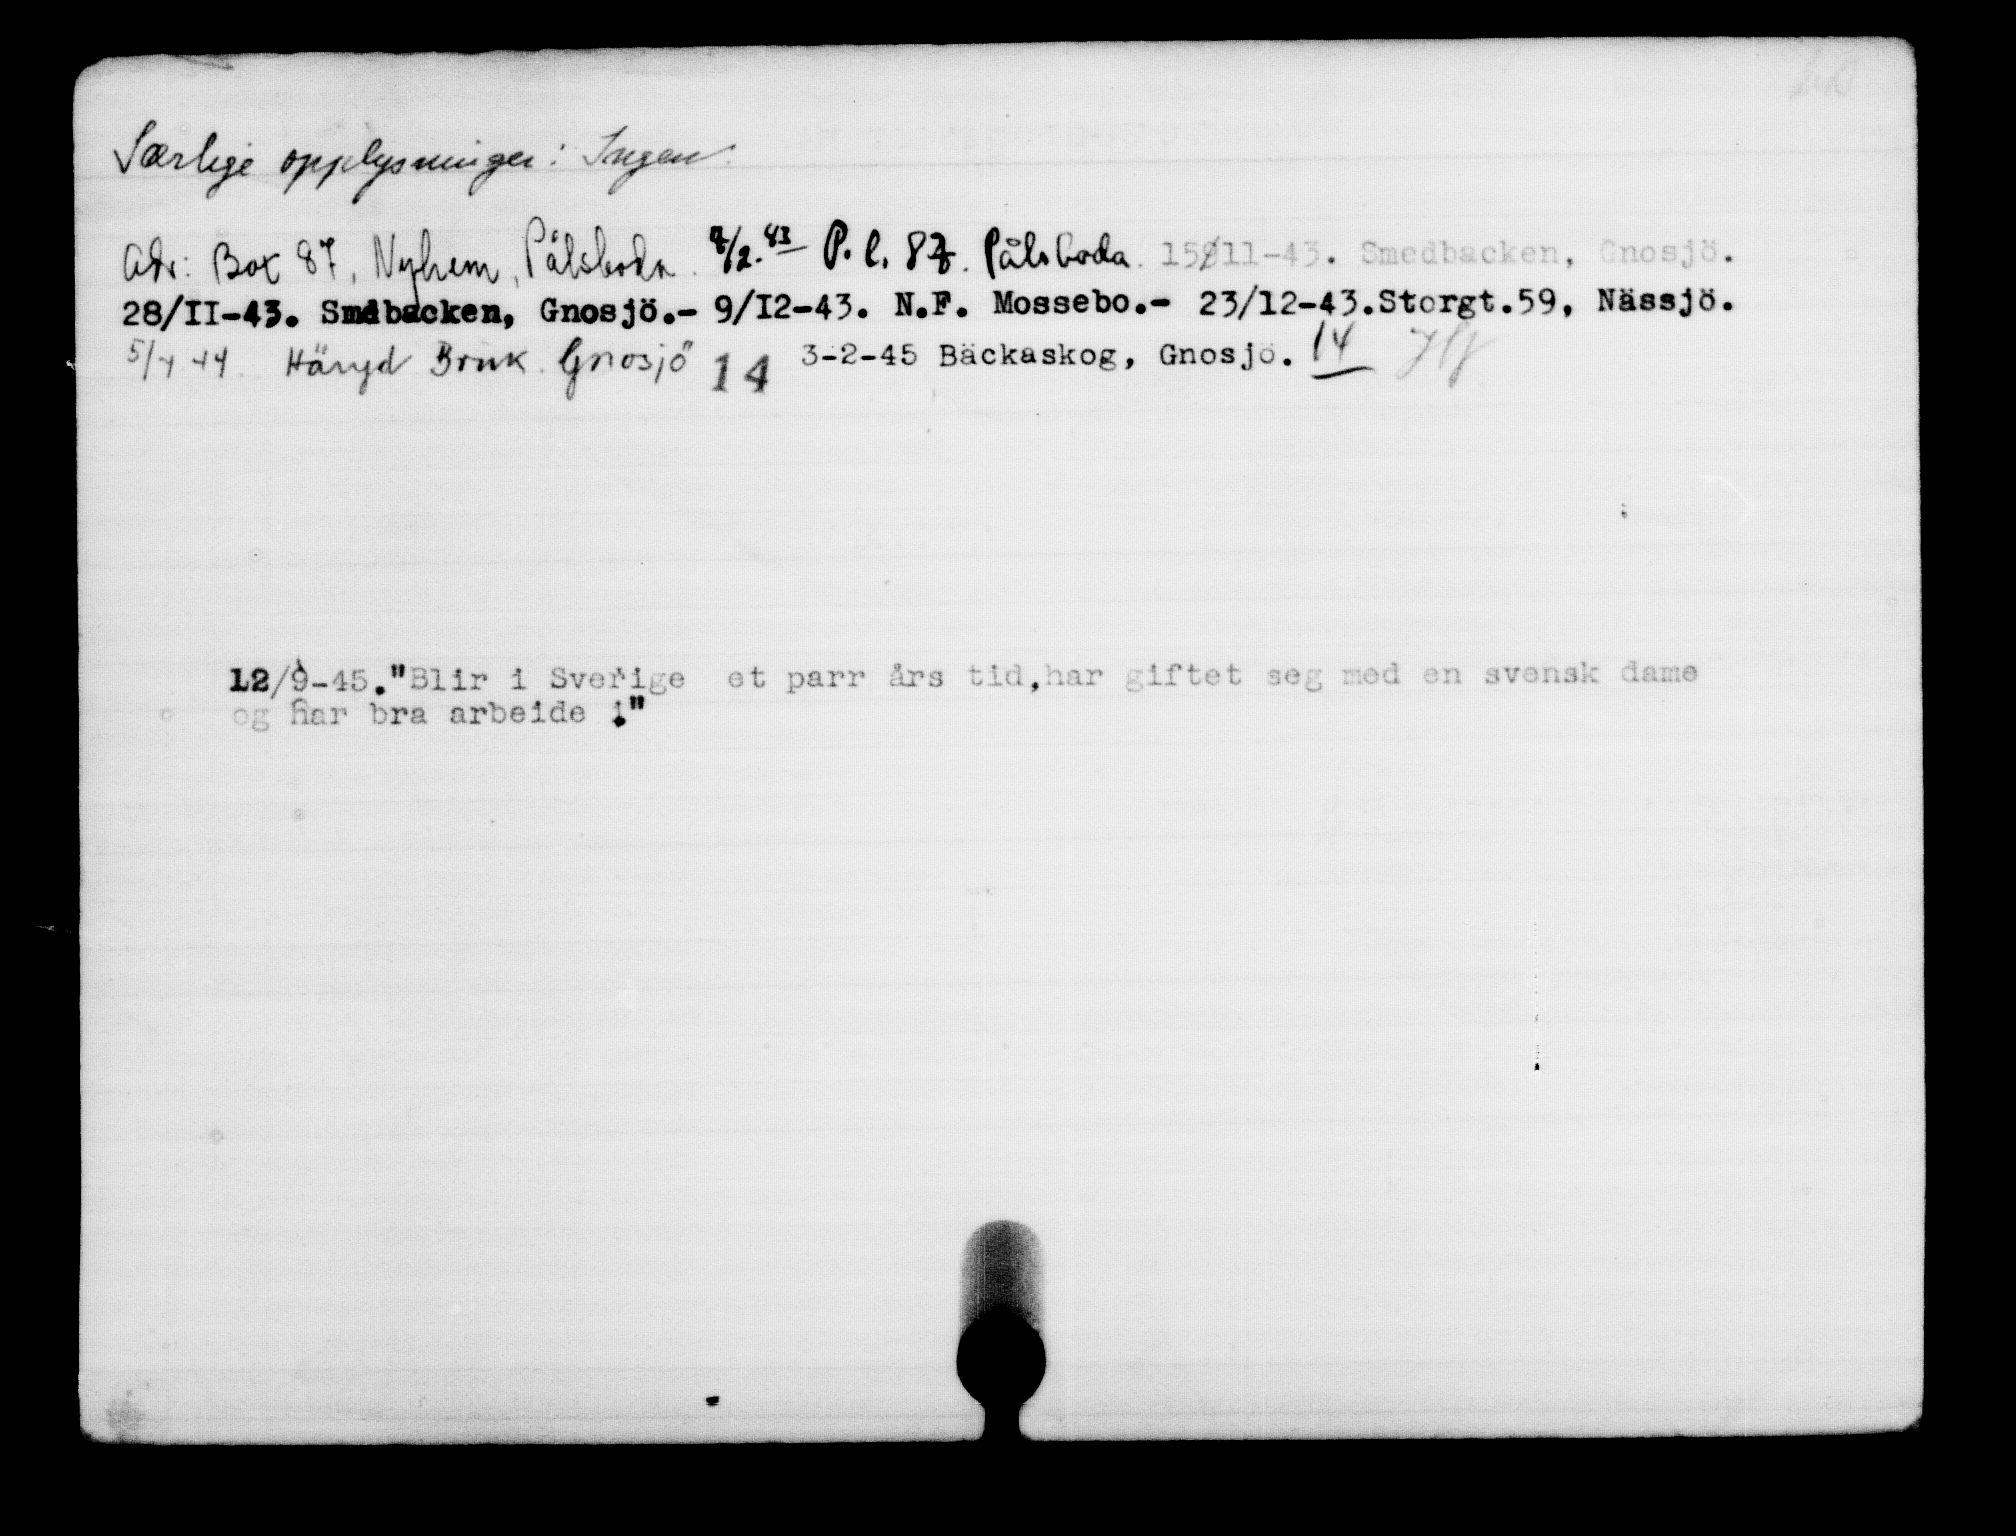 Særlige opplysninger: Ingen.
Adr: Box 87, Nyhem, Pålsboda. 7/2.-43 P.l. 87. Pålsboda. 15/11-43. Smedbacken, Gnosjö.
28/II-43. Smdbacken, Gnosjö.- 9/I2-43. N.F. Mossebo.- 23/12-43.Storgt.59, Nässjö.
5/4-44. Häryd Bruk. Gnosjö 14 3-2-45 Bäckaskog, Gnosjö. 14
12/9-45."Blir i Sverige et parr års tid,har giftet seg med en svensk dame
og har bra arbeide i."